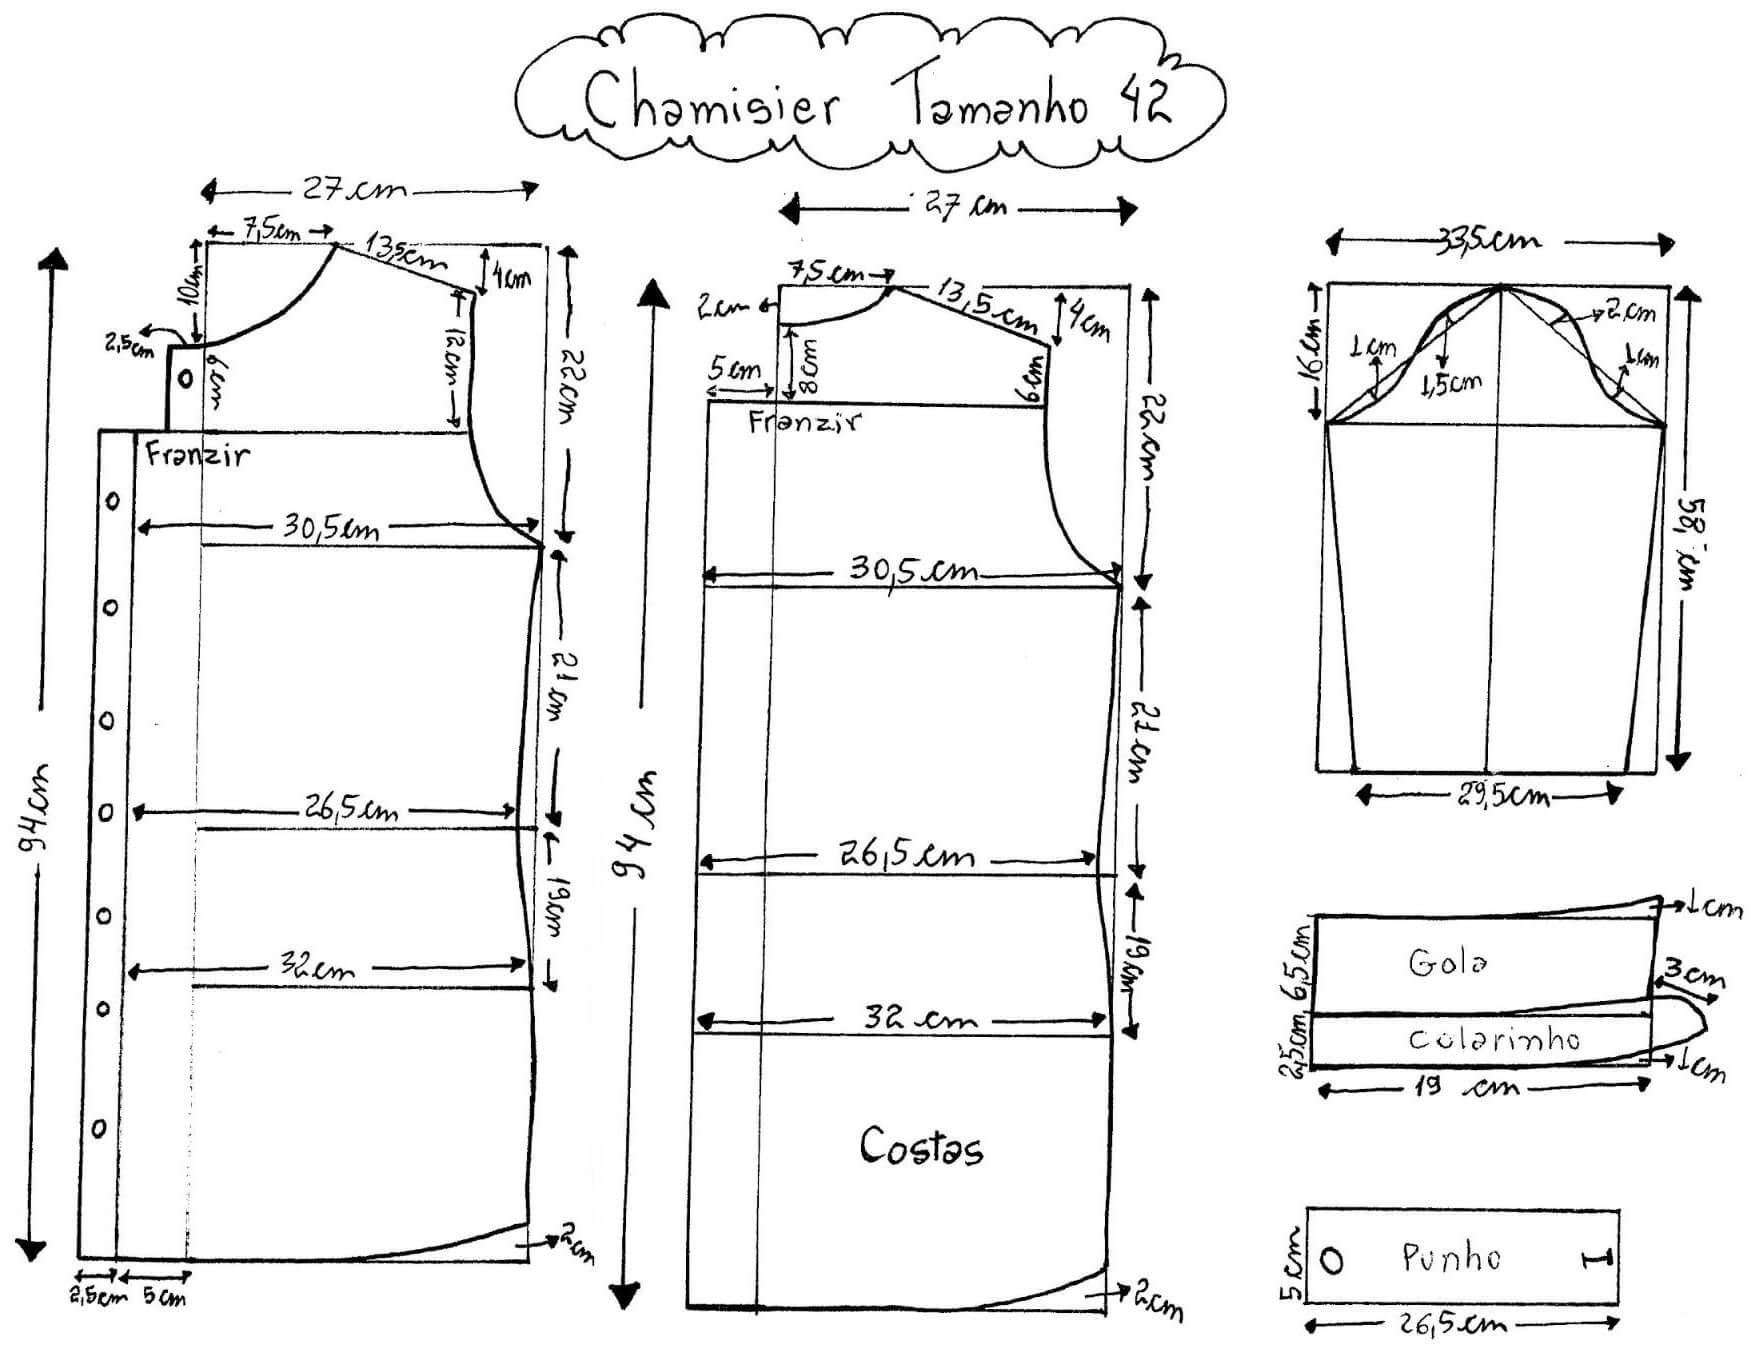 Chamisier Tamanho 42
27 cm
7,5cm
13,5cm
10cm
4cm
2,5cm
6cm
12cm
22cm
Franzir
30,5cm
21cm
94cm
26,5cm
19cm
32cm
2cm
2,5cm
5cm
27 cm
7,5cm
13,5cm
2cm
4cm
8cm
5cm
6cm
22cm
Franzir
30,5 cm
21cm
94 cm
26,5 cm
19cm
32 cm
Costas
2cm
33,5cm
16cm
1cm
1,5cm
2cm
1cm
58,5cm
29,5cm
1cm
6,5cm
Gola
3cm
2,5cm
Colarinho
1cm
19 cm
5cm
Punho
26,5cm